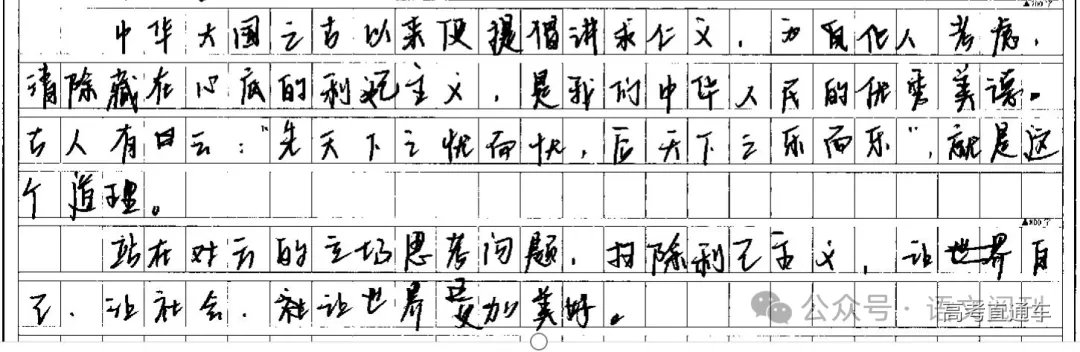 ▲700字
中华大国之古以来便提倡讲求仁义，为自化人考虑，
清除藏在心底的利己主义，是我们中华人民的优秀美德。
古人有曰云：“先天下之忧而忧，后天下之乐而乐”，就是这
个道理。
▲800字
站在对方的立场思考问题，扫除利己主义，让世界自
己、让社会、让世界更加美好。
公众号·语高考直通车